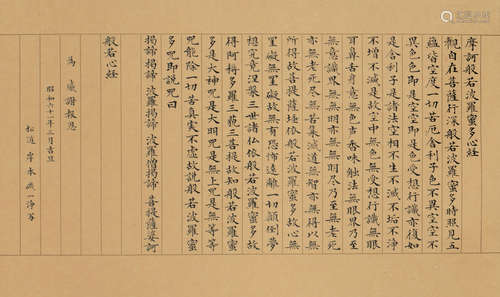 摩訶般若波羅蜜多心経
觀自在菩薩行深般若波羅蜜多時照見五
蘊皆空度一切苦厄舎利子色不異空空不
異色色即是空空即是色受想行識亦復如
是舎利子是諸法空相不生不滅不垢不浄
不増不減是故空中無色無受想行識無眼
耳鼻舌身意無色声香味触法無眼界乃至
無意識界無無明亦無無明尽乃至無老死
亦無老死尽無苦集滅道無智亦無得以無
所得故菩提薩埵依般若波羅蜜多故心無
罣礙無罣礙故無有恐怖遠離一切顛倒夢
想究竟涅槃三世諸仏依般若波羅蜜多故
得阿耨多羅三藐三菩提故知般若波羅蜜
多是大神呪是大明呪是無上呪是無等等
呪能除一切苦真実不虚故説般若波羅蜜
多呪即説呪曰
揭諦揭諦 波羅揭諦 波羅僧揭諦 菩提薩婆訶
般若心経
為 感謝報恩
昭和六十一年三月吉旦
浄写